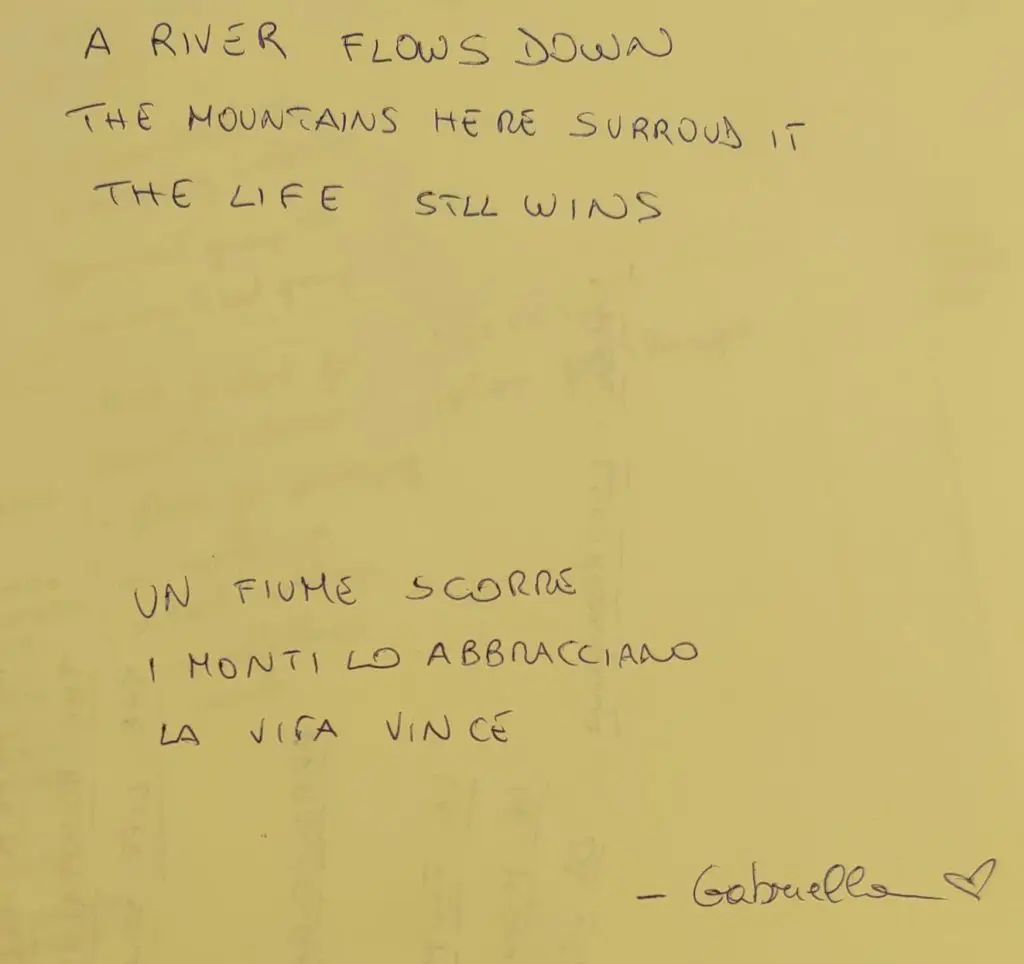 A RIVER FLOWS DOWN
THE MOUNTAINS HERE SURROUD IT
THE LIFE STLL WINS
UN FIUME SCORRE
I MONTI LO ABBRACCIANO
LA VITA VINCE
- Gabriella ♡